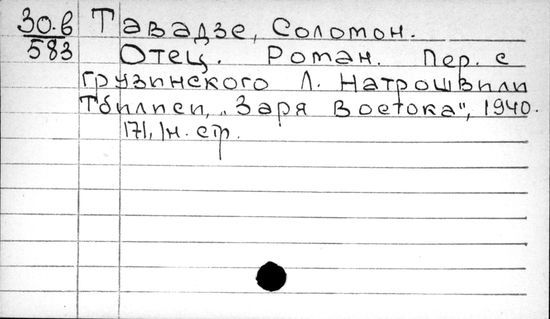 30.в Тавадзе, Соломон.
583 Отец. Роман. Пер. с
грузинского Л. Натрошвили
Тбилиси, „Заря Востока", 1940.
171, 1н. стр.